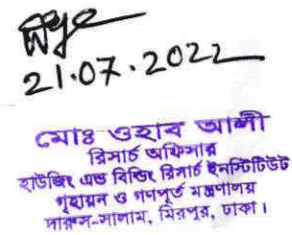 21.07.2022
মোঃ ওহাব আলী
রিসার্চ অফিসার
হাউজিং এন্ড বিল্ডিং রিসার্চ ইনস্টিটিউট
গৃহায়ন ও গণপূর্ত মন্ত্রণালয়
দারুস-সালাম, মিরপুর, ঢাকা।